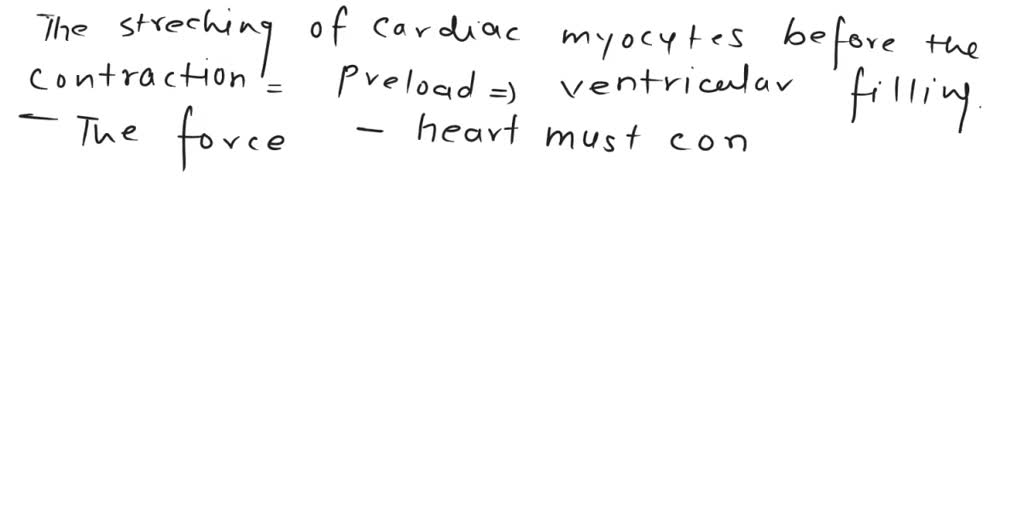 The streching of cardiac myocytes before the
contraction = Preload => ventricular filling.
- The force - heart must con